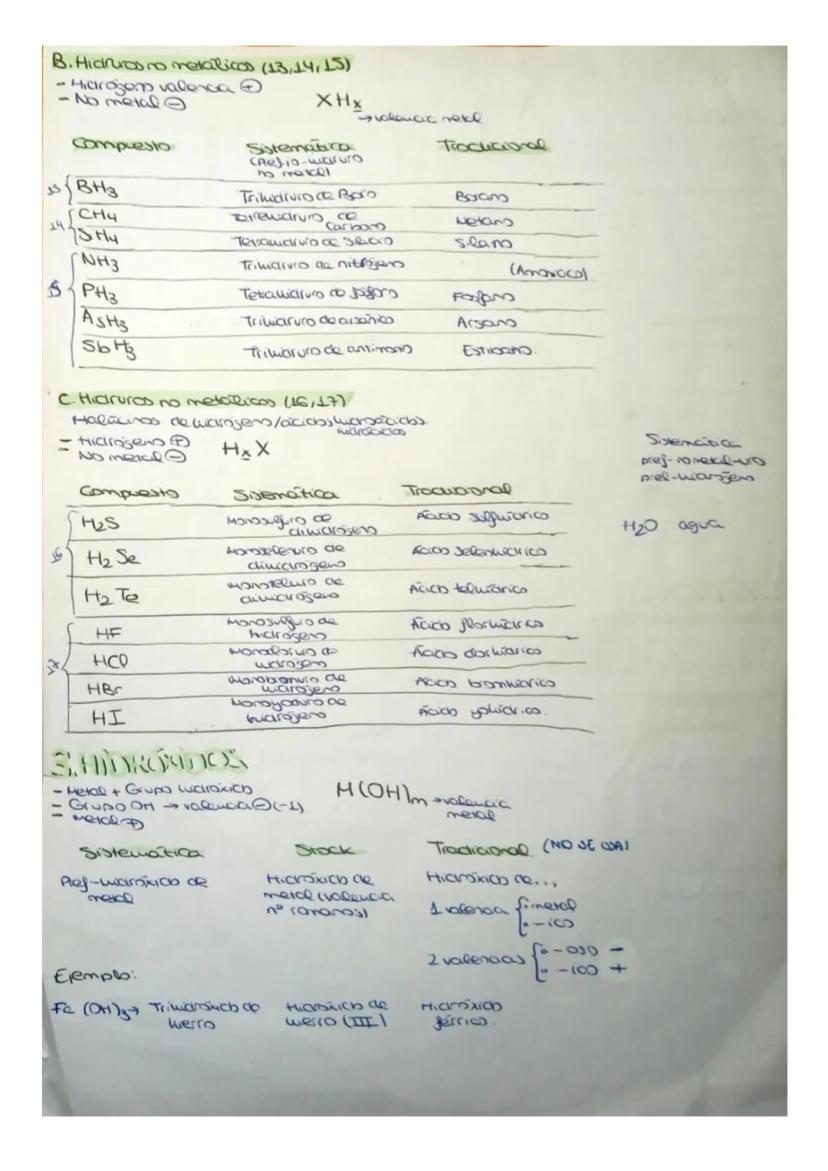 B. Hidruros no metálicos (13,14,15)
- Hidrógeno valencia ⊕
- No metal ⊖
XHx
→ valencia metal
Compuesto Sistemática Tradicional
(Prefijo-hidruro
no metal)
13 BH3 Trihidruro de Boro Borano
14 CH4 Tetrahidruro de Carbono Metano
SiH4 Tetrahidruro de Silicio Silano
15 NH3 Trihidruro de nitrógeno (Amoniaco)
PH3 Tetrahidruro de fósforo Fosfano
AsH3 Trihidruro de arsénico Arsano
SbH3 Trihidruro de antimonio Estibano.
C. Hidruros no metálicos (16,17)
Haluros de hidrógeno/ácidos hidrácidos
- Hidrógeno ⊕
- No metal ⊖
HxX
Sistemática
pref-no metal-uro
pref-hidrógeno
H2O agua
Compuesto Sistemática Tradicional
16 H2S Monosulfuro de dihidrógeno Ácido sulfhídrico
H2Se Monoseleniuro de dihidrógeno Ácido selenhídrico
H2Te Monoteluro de dihidrógeno Ácido telurhídrico
17 HF hidrógeno Ácido fluorhídrico
HCl Monocloruro de hidrógeno Ácido clorhídrico
HBr Monobromuro de hidrógeno Ácido bromhídrico
HI Monoyoduro de hidrógeno Ácido yohídrico.
3. HIDRÓXIDOS
- Metal + Grupo hidróxido
- Grupo OH → valencia ⊖ (-1)
- Metal ⊕
M(OH)m → valencia
metal
Sistemática Stock Tradicional (NO SE USA)
Pref-hidróxido de Hidróxido de Hidróxido de...
metal metal (valencia
nº romanos)
1 valencia { · metal
· -ico
2 valencias { · -oso -
· -ico +
Ejemplo:
Fe (OH)3 → Trihidróxido de Hidróxido de Hidróxido
hierro hierro (III) férrico